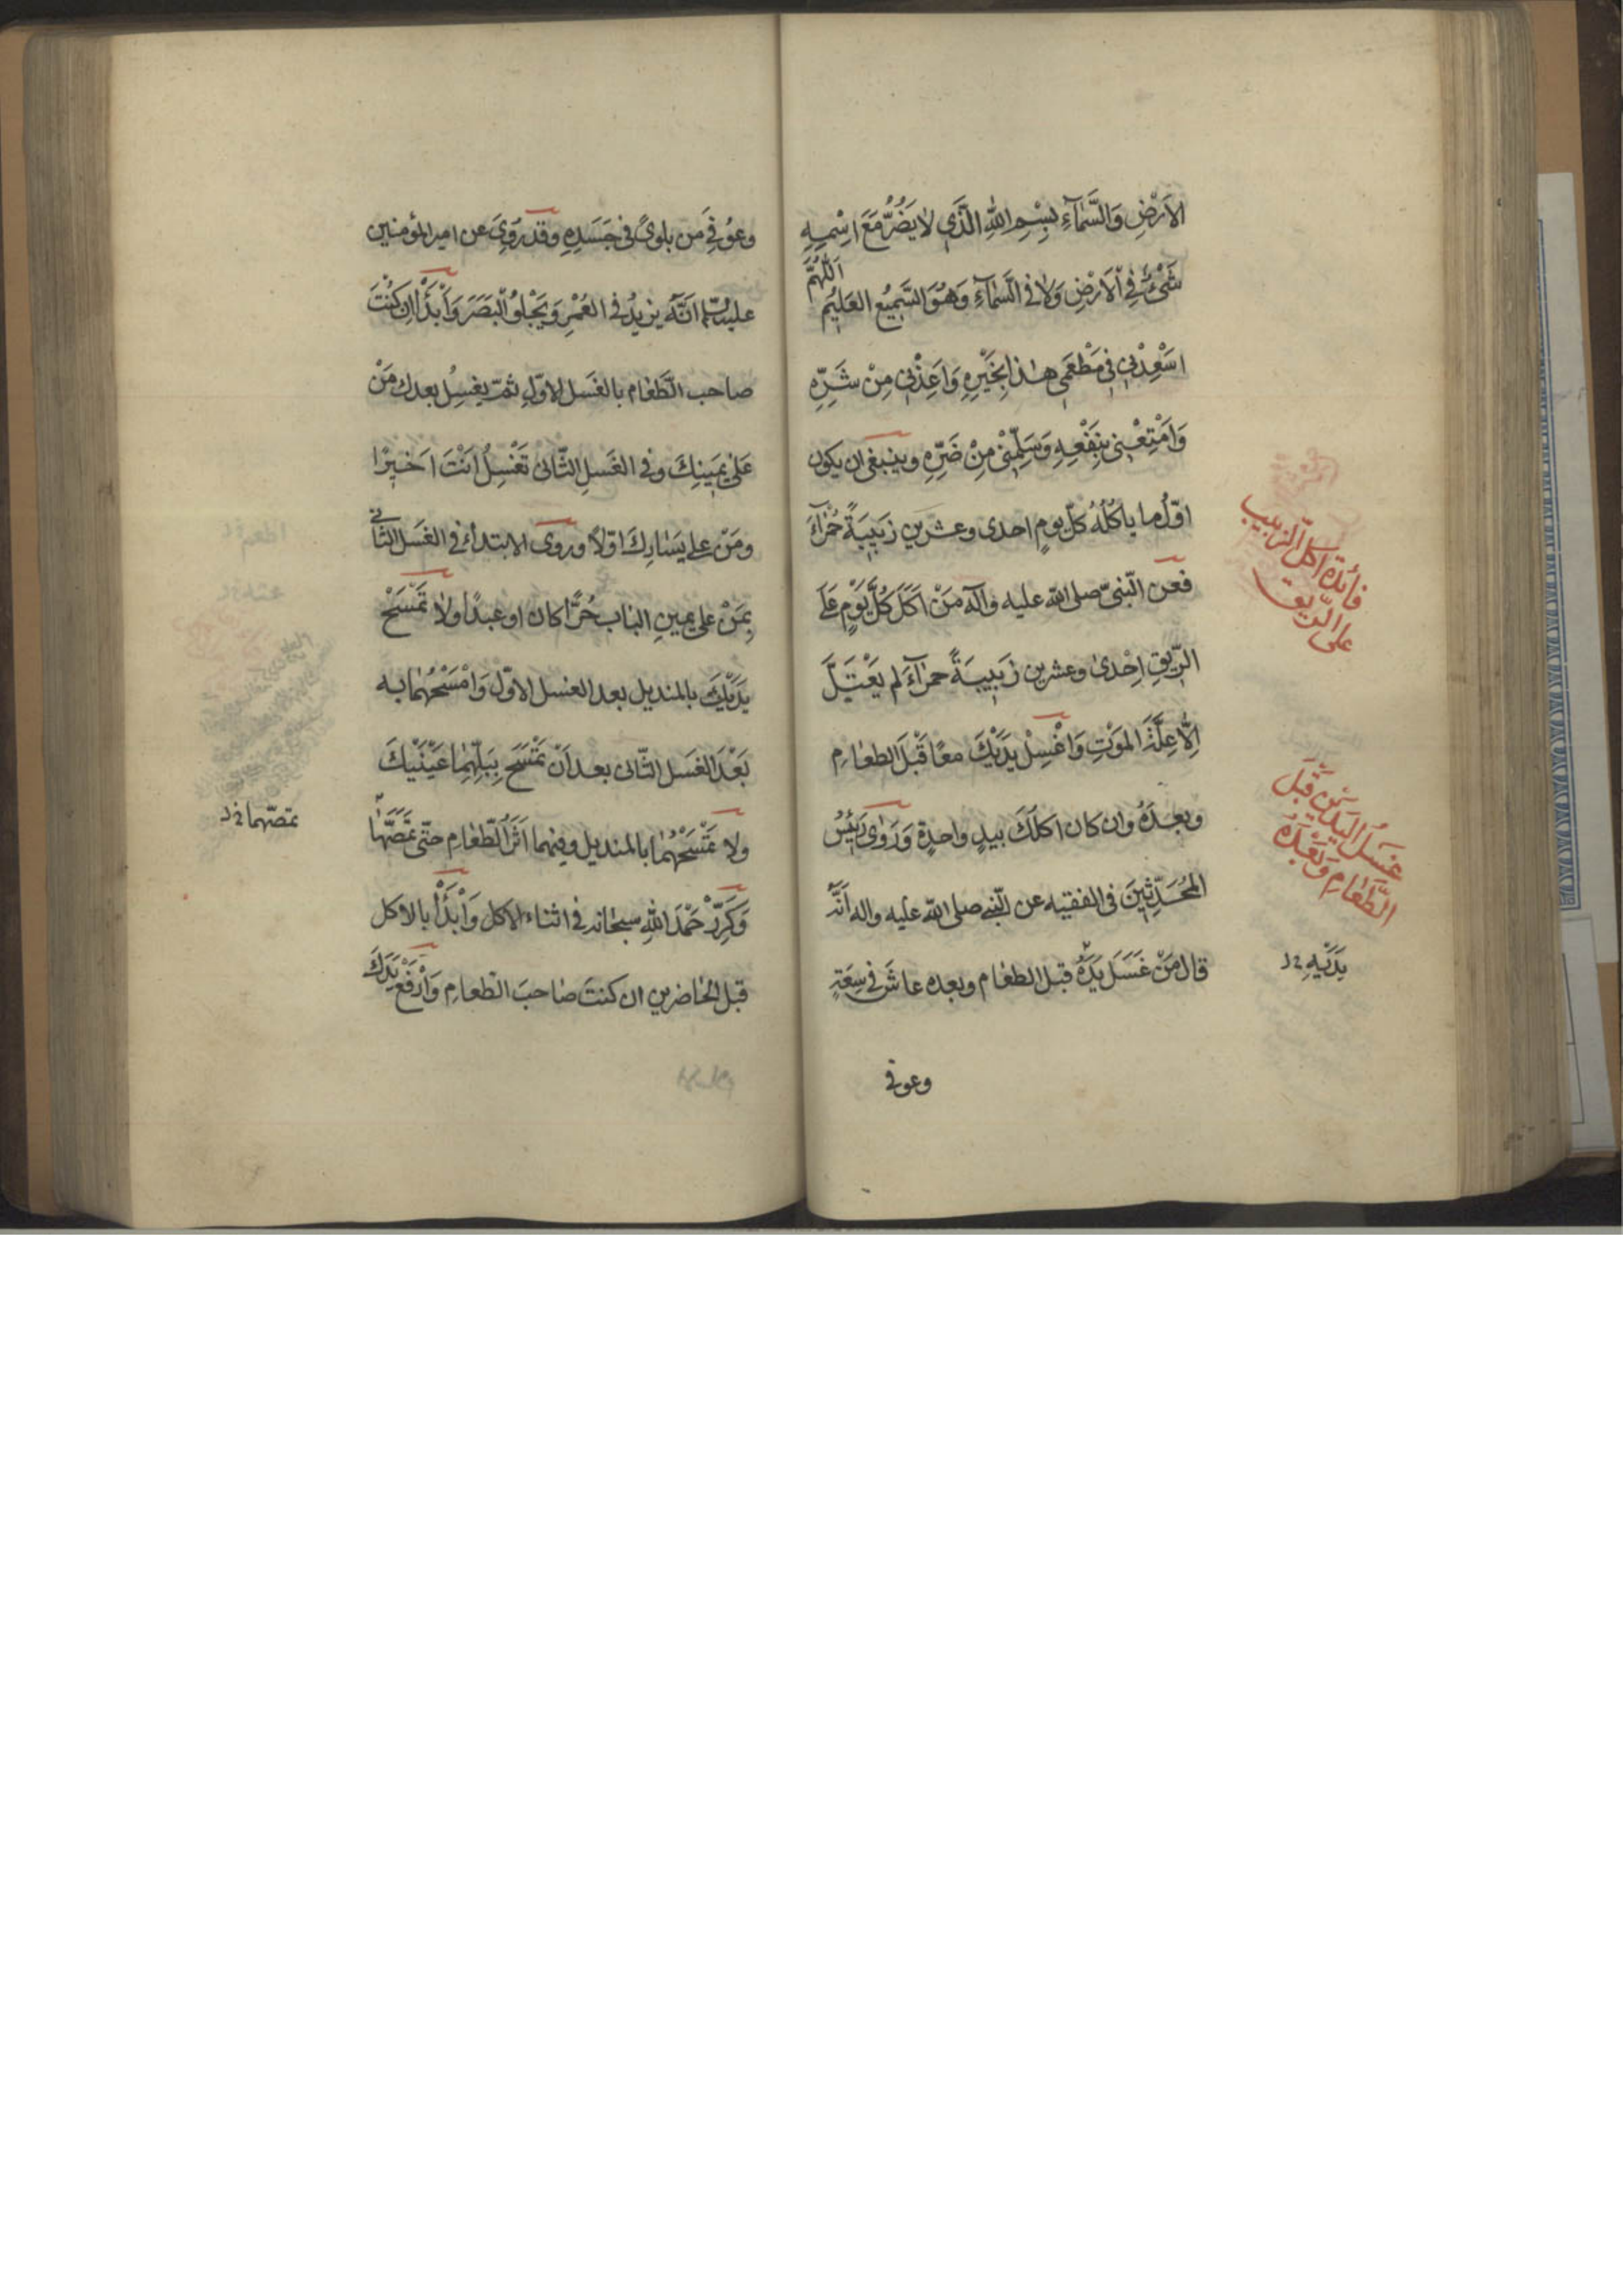 الاَرْضِ وَالسَّمٰآءِ بِسْمِ اللّٰهِ الَّذَي لا يَضُرُّ مَعَ اسْمِهِ
شَيْءٌ فِي الْاَرْضِ وَلا في السَّمٰآءِ وَهُوَ السَّمِيعُ العَلِيْم اَللّٰهُمَّ
اسْعِدْنِي في مَطْعَمي هٰذا بِخَيْرِهِ وَاَعِذْنِي مِنْ شَرِّهِ
وَامْتِعْنِي بِنَفْعِهِ وَسَلِّمْنِي مِنْ ضَرِّهِ وينبغي ان يكون
اوّلُ ما ياكُلُهُ كلّ يومٍ احدى وعشرين زَبِيبَةً حُمْرٰآءَ
فعن النّبيّ صلى اللّه عليه وآله مَنْ اَكَلَ كُلَّ يَوْمٍ عَلَى
الرّيقِ اِحْدىٰ وعشرين زَبِيبَةً حمرٰآءَ لم يَعْتَلَّ
اِلّا عِلَّةَ المَوْتِ وَاغْسِلْ يَدَيْكَ معًا قَبْلَ الطعٰامِ
وبعدَهُ وان كان اكلُكَ بيدٍ واحدةٍ وَرَوٰى رَئيْسُ
المُحَدِّثِينَ في الفقيه عن النّبي صلى اللّه عليه واله اَنَّهُ
قال مَنْ غَسَلَ يَدَهُ قبل الطعٰام وبعده عاشَ في سِعَةٍ
وعوفي
فائدة اكل الزبيب
على الرّيق
غسلُ اليدَينِ قَبلَ
الطَّعٰامِ وَبَعْدَهُ
يَدَيْهِ خ ل
وعُوفِيَ من بلوىً في جَسَدِهِ وقد رُوِيَ عن امير المؤمنين
عليه السلم انَّهُ يزيدُ في العُمْرِ وَيَجْلوُ الْبَصَرَ وَاْبْدَأْ اِن كُنْتَ
صاحب الطّعٰام بالغَسل الاوّلِ ثمّ يغسِلُ بعدك مَنْ
عَلىٰ يَمِينِكَ وفي الغَسلِ الثّاني تَغْسِلُ اَنْتَ اَخيْرًا
ومَنْ على يَسٰارِكَ اوّلًا وروى الابتداءُ في الغَسل الثّاني
بِمَنْ على يمينِ البٰاب حُرًّا كان او عبدًا ولا تَمْسَحْ
يَدَيْكَ بالمنديل بعد الغسل الاوّل وَامْسَحْهُمٰا به
بَعْدَ الغَسل الثّاني بعد اَنْ تَمْسَحَ بِبَلِّهِمٰا عَيْنَيْكَ
ولا تَمْسَحْهُمٰا بالمنديل وفيهما اَثَرُ الطّعٰامِ حتّى تَمَصَّهٰا
وَكَرِّرْ حَمْدَ اللّٰهِ سبحٰانه في اثناء الاكل وَابْدَأْ بالاكل
قبل الحٰاضرين ان كنتَ صٰاحبَ الطّعٰامِ وَارْفَعْ يَدَكَ
تمصّهما خ ل